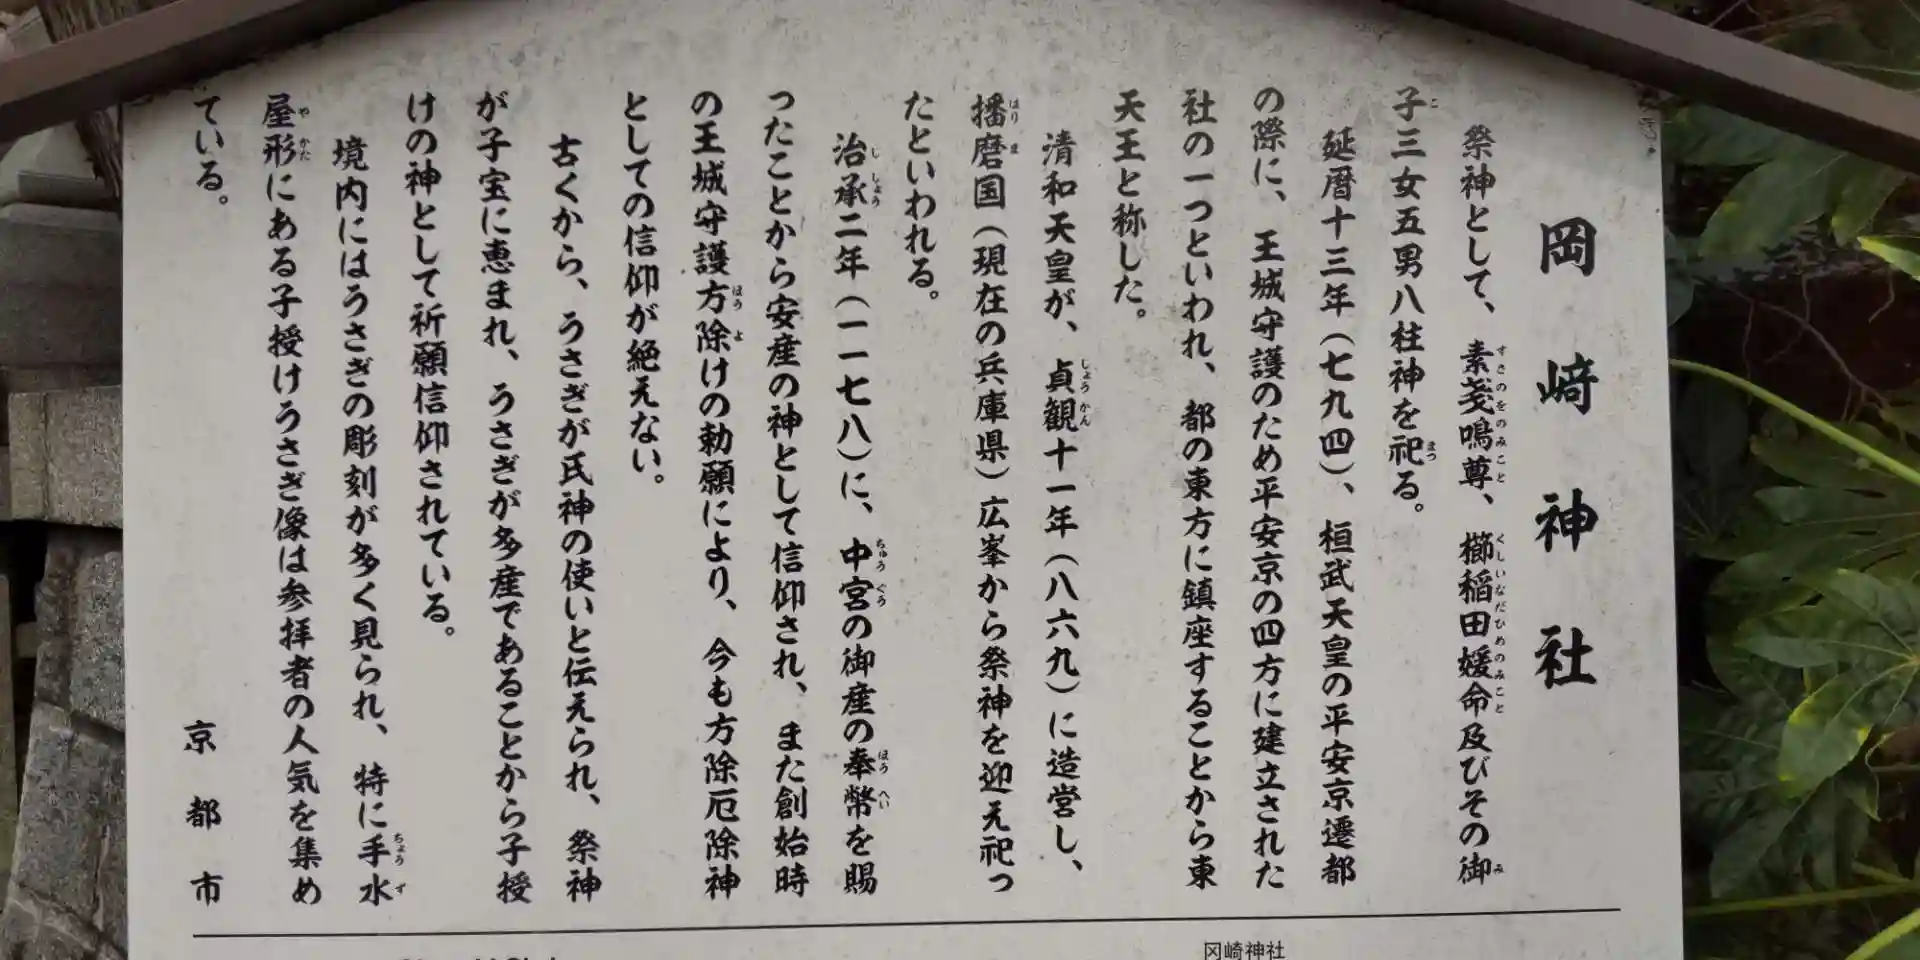 岡崎神社
祭神として、素戔嗚尊、櫛稲田媛命及びその御
子三女五男八柱神を祀る。
延暦十三年（七九四）、桓武天皇の平安京遷都
の際に、王城守護のため平安京の四方に建立された
社の一つといわれ、都の東方に鎮座することから東
天王と称した。
清和天皇が、貞観十一年（八六九）に造営し、
播磨国（現在の兵庫県）広峯から祭神を迎え祀っ
たといわれる。
治承二年（一一七八）に、中宮の御産の奉幣を賜
ったことから安産の神として信仰され、また創始時
の王城守護方除けの勅願により、今も方除厄除神
としての信仰が絶えない。
古くから、うさぎが氏神の使いと伝えられ、祭神
が子宝に恵まれ、うさぎが多産であることから子授
けの神として祈願信仰されている。
境内にはうさぎの彫刻が多く見られ、特に手水
屋形にある子授けうさぎ像は参拝者の人気を集め
ている。
京都市
冈崎神社